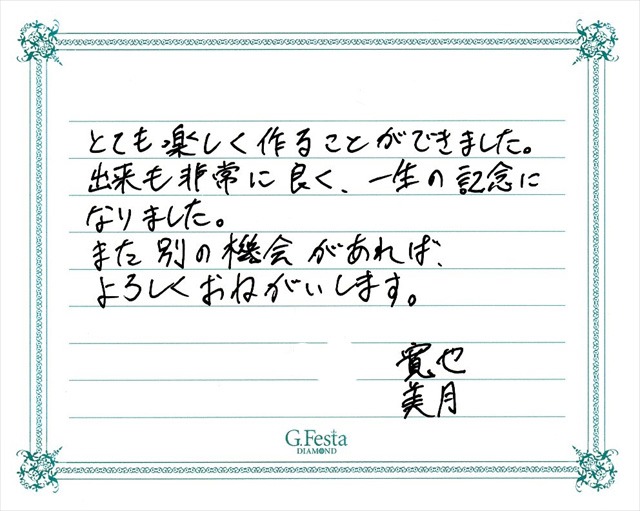 とても楽しく作ることができました。
出来も非常に良く、一生の記念に
なりました。
また別の機会があれば、
よろしくおねがいします。
寛也
美月
G.Festa
DIAMOND